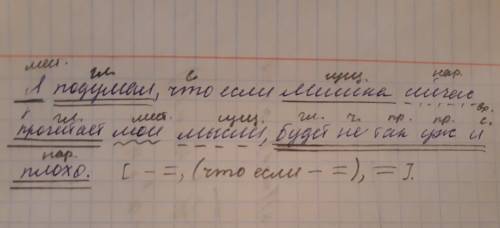 мест. гл. с. сущ. нар.
Я подумал, что если Мишка сейчас
гл. мест. сущ. гл. ч. пр. пр. с.
прочитает мои мысли, будет не так уж и
нар.
плохо. [ - =, (что если - =), = ].